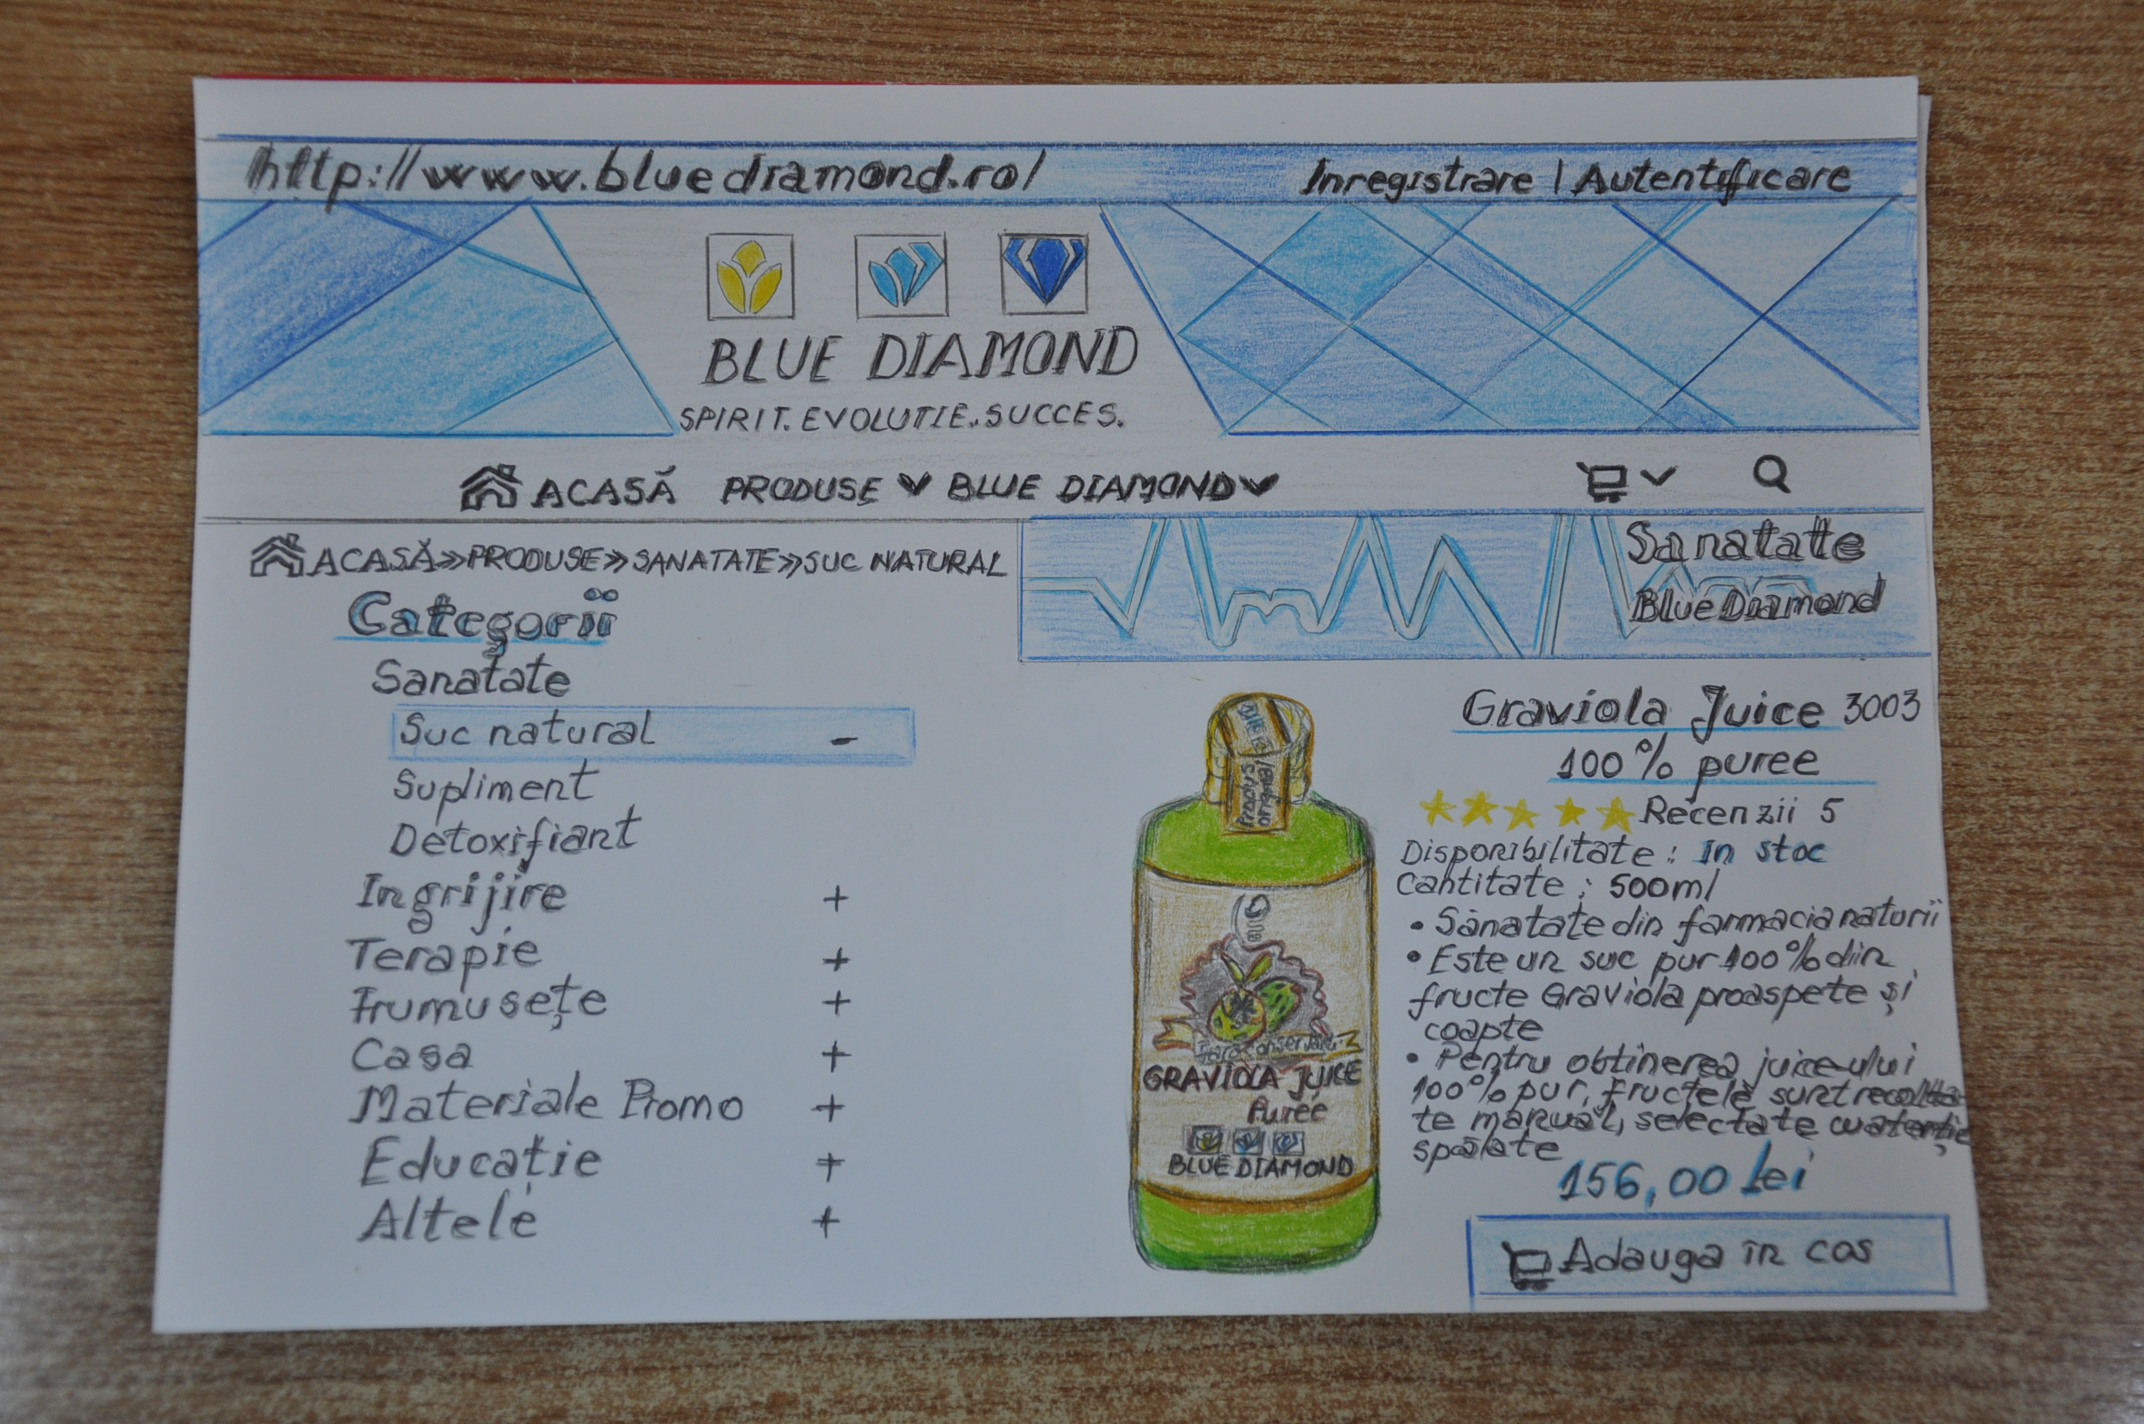 http://www.bluediamond.ro/
Inregistrare | Autentificare
BLUE DIAMOND
SPIRIT. EVOLUTIE. SUCCES.
ACASĂ PRODUSE BLUE DIAMOND
ACASĂ»PRODUSE»SANATATE»SUC NATURAL
Sanatate
Blue Diamond
Categorii
Sanatate
Suc natural -
Supliment
Detoxifiant
Ingrijire +
Terapie +
Frumusețe +
Casa +
Materiale Promo +
Educație +
Altele +
Produs
original
GRAVIOLA JUICE
Puree
BLUE DIAMOND
Graviola Juice 3003
100% puree
Recenzii 5
Disponibilitate: In stoc
Cantitate: 500ml
• Sănatate din farmacia naturii
• Este un suc pur 100% din
fructe Graviola proaspete și
coapte
• Pentru obtinerea juice-ului
100% pur, fructele sunt recolta-
te manual, selectate cu atenție
spălate
156,00 Lei
Adauga în cos